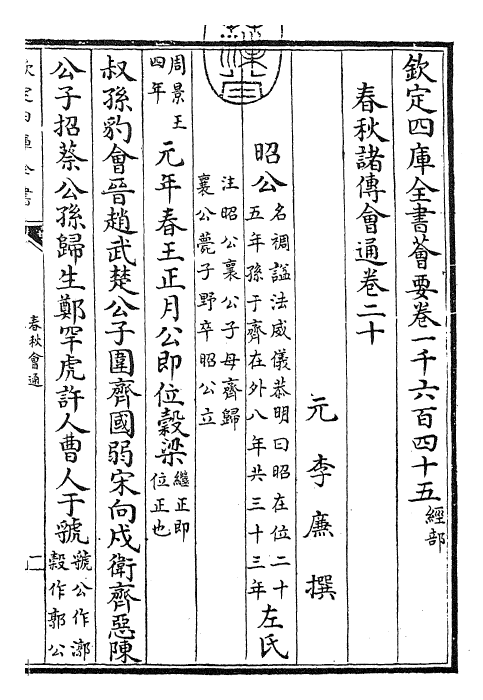 欽定四庫全書薈要卷一千六百四十五經部
春秋諸傳會通卷二十
元李廉撰
昭公名裯諡法威儀恭明曰昭在位二十五年孫于齊在外八年共三十三年左氏
注昭公襄公子母齊歸襄公薨子野卒昭公立
周景王四年元年春王正月公即位穀梁繼正即位正也
叔孫豹會晉趙武楚公子圍齊國弱宋向戌衛齊惡陳
公子招蔡公孫歸生鄭罕虎許人曹人于虢虢公作漷穀作郭公
春秋會通
一